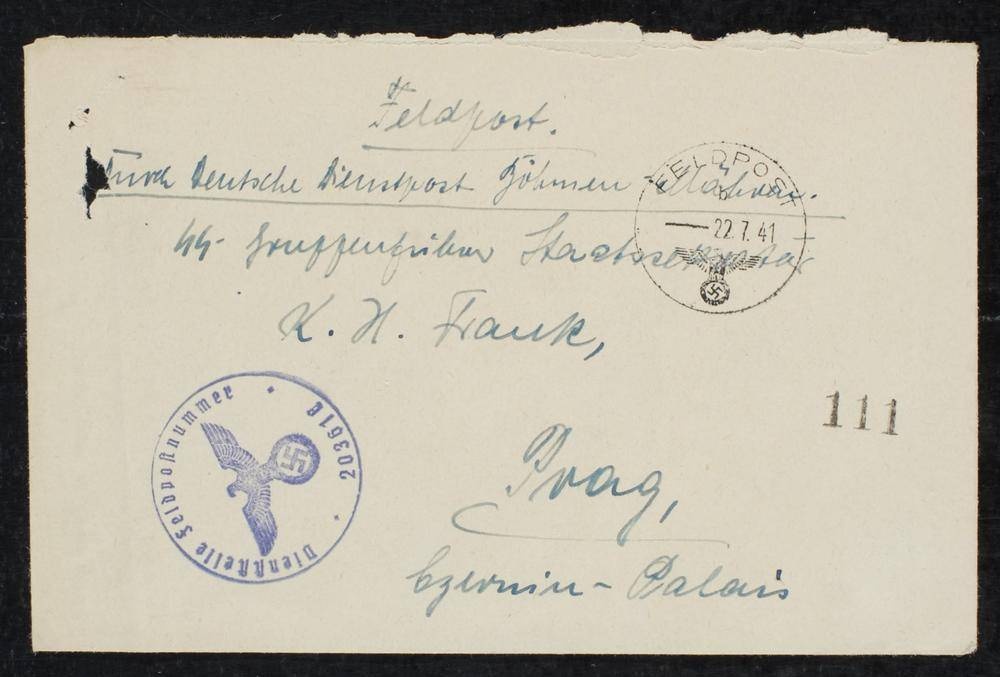 Feldpost.
Durch Deutsche Dienstpost Böhmen-Mähren.
SS-Gruppenführer Staatssekretär
K. H. Frank,
Prag,
Czernin-Palais
FELDPOST
b
22.7.41
111
Dienststelle Feldpostnummer
20361C